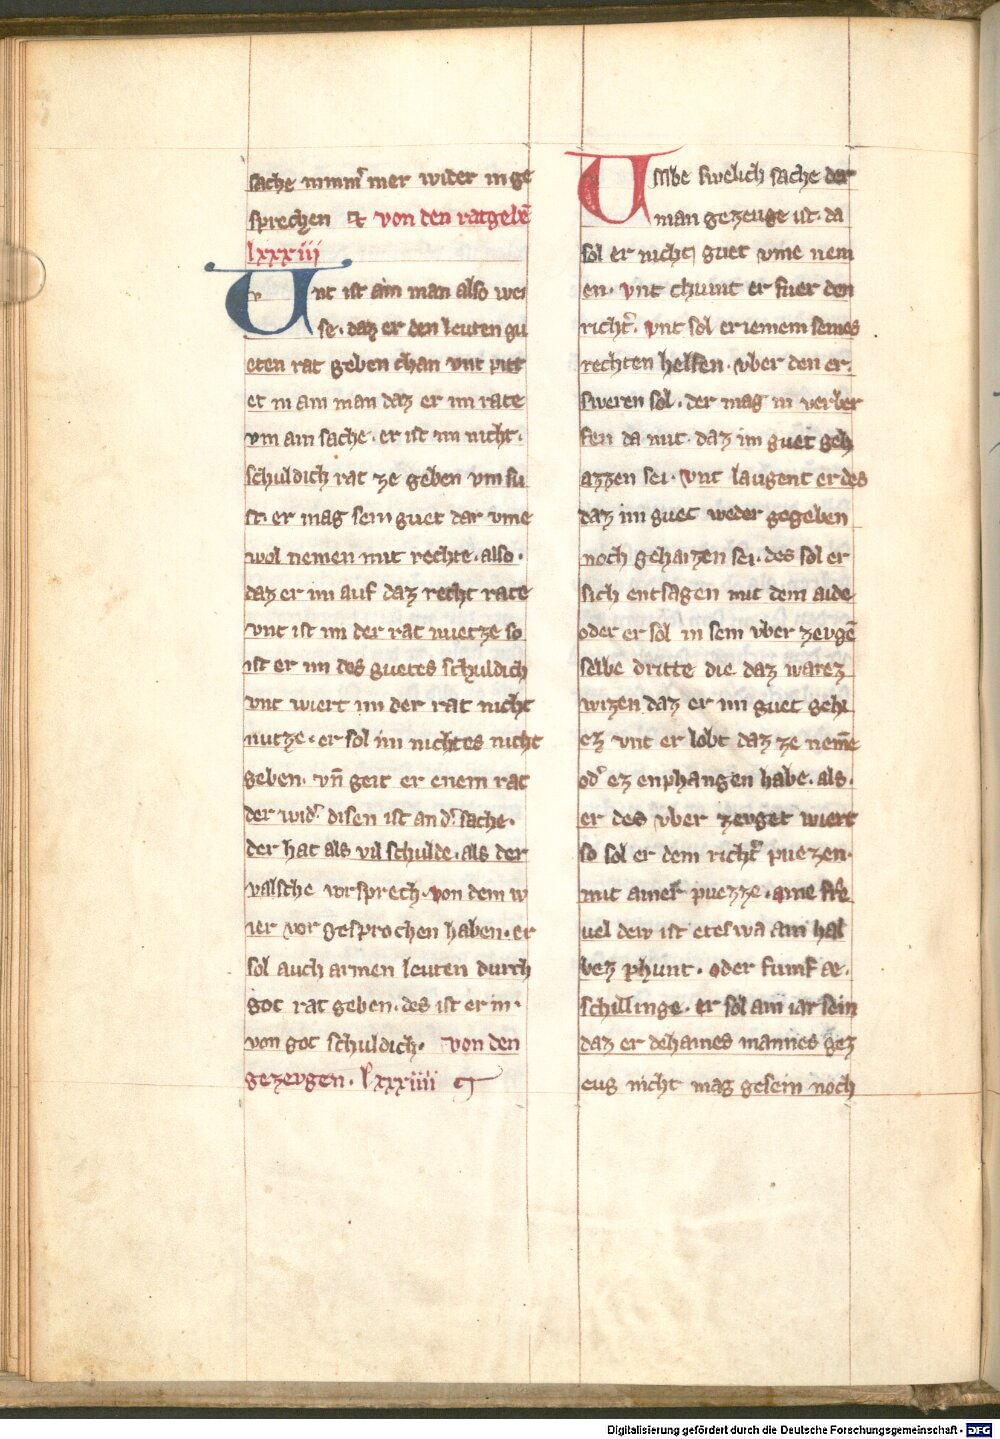 sache nimmͣ mer wider in ge
sprechen et von den ratgebē
lxxxiii
Unt ist ain man also wei
se. daz er den leuten gu
eten rat geben chan vnt pitt
et in ain man daz er im rate
vm ain sache. er ist im nicht.
schuldich rat ze geben vm su
st. er mag sein guet dar vme
wol nemen mit rechte. also.
daz er im auf daz recht rate
vnt ist im der rat nuetze so
ist er im des guetes schuldich
vnt wiert im der rat nicht
nutze. er sol im nichtes nicht
geben. vn̄ geit er enem rat
der wid᷑ disen ist an d᷑ sache.
der hat als vil schulde. als der
valsche vorsprech. von dem w
ier vor gesprochen haben. er
sol auch armen leuten durch
got rat geben. des ist er in.
von got schuldich. von den
gezevgen. lxxxiiii
swelich sache der
man gezeuge ist. da
sol er nicht guet vme nem
en. vnt chumt er fuer den
richt᷑. vnt sol er iemem seines
rechten helfen. vber den er.
sweren sol. der mag in verber
fen da mit. daz im guet geh
azzen sei. vnt laugent er des
daz im guet weder gegeben
noch gehaizen sei. des sol er
sich entsagen mit dem aide
oder er sol in sein vber zevgē
selbe dritte die daz warez
wizen daz er im guet gehi
ez vnt er lobt daz ze nemē
od᷑ ez enphangen habe. als.
er des vber zevget wiert
so sol er dem richt᷑ puezen.
mit ainer puezze. aine fre
uel dew ist eteswa ain hal
bez phunt. oder fumf æ.
schillinge. er sol ain iar sein
daz er dehaines mannes gez
eug nicht mag gesein noch
Digitalisierung gefördert durch die Deutsche Forschungsgemeinschaft - DFG